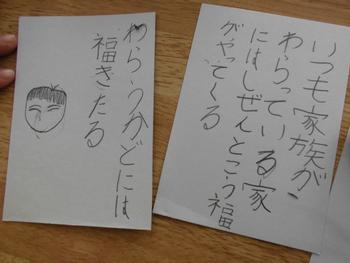 いつも家族が
わらっている家
にはしぜんとこう福
がやってくる
わらうかどには
福ぎたる